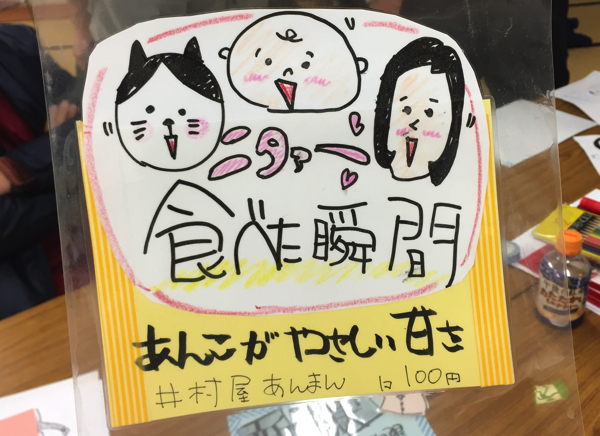 ニタァー
食べた瞬間
あんこがやさしい甘さ
井村屋あんまん 1コ100円